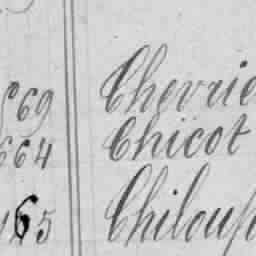 869 Chevrie
664 Chicot
165 Chiloup